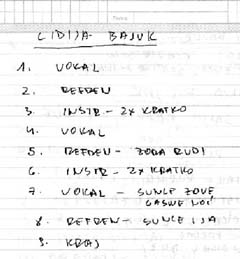 LIDIJA BAJUK
1. VOKAL
2. REFREN
3. INSTR - 2x KRATKO
4. VOKAL
5. REFREN - ZORA RUDI
6. INSTR - 2x KRATKO
7. VOKAL - SUNCE ZOVE
8. REFREN - SUNCE IJA
9. KRAJ